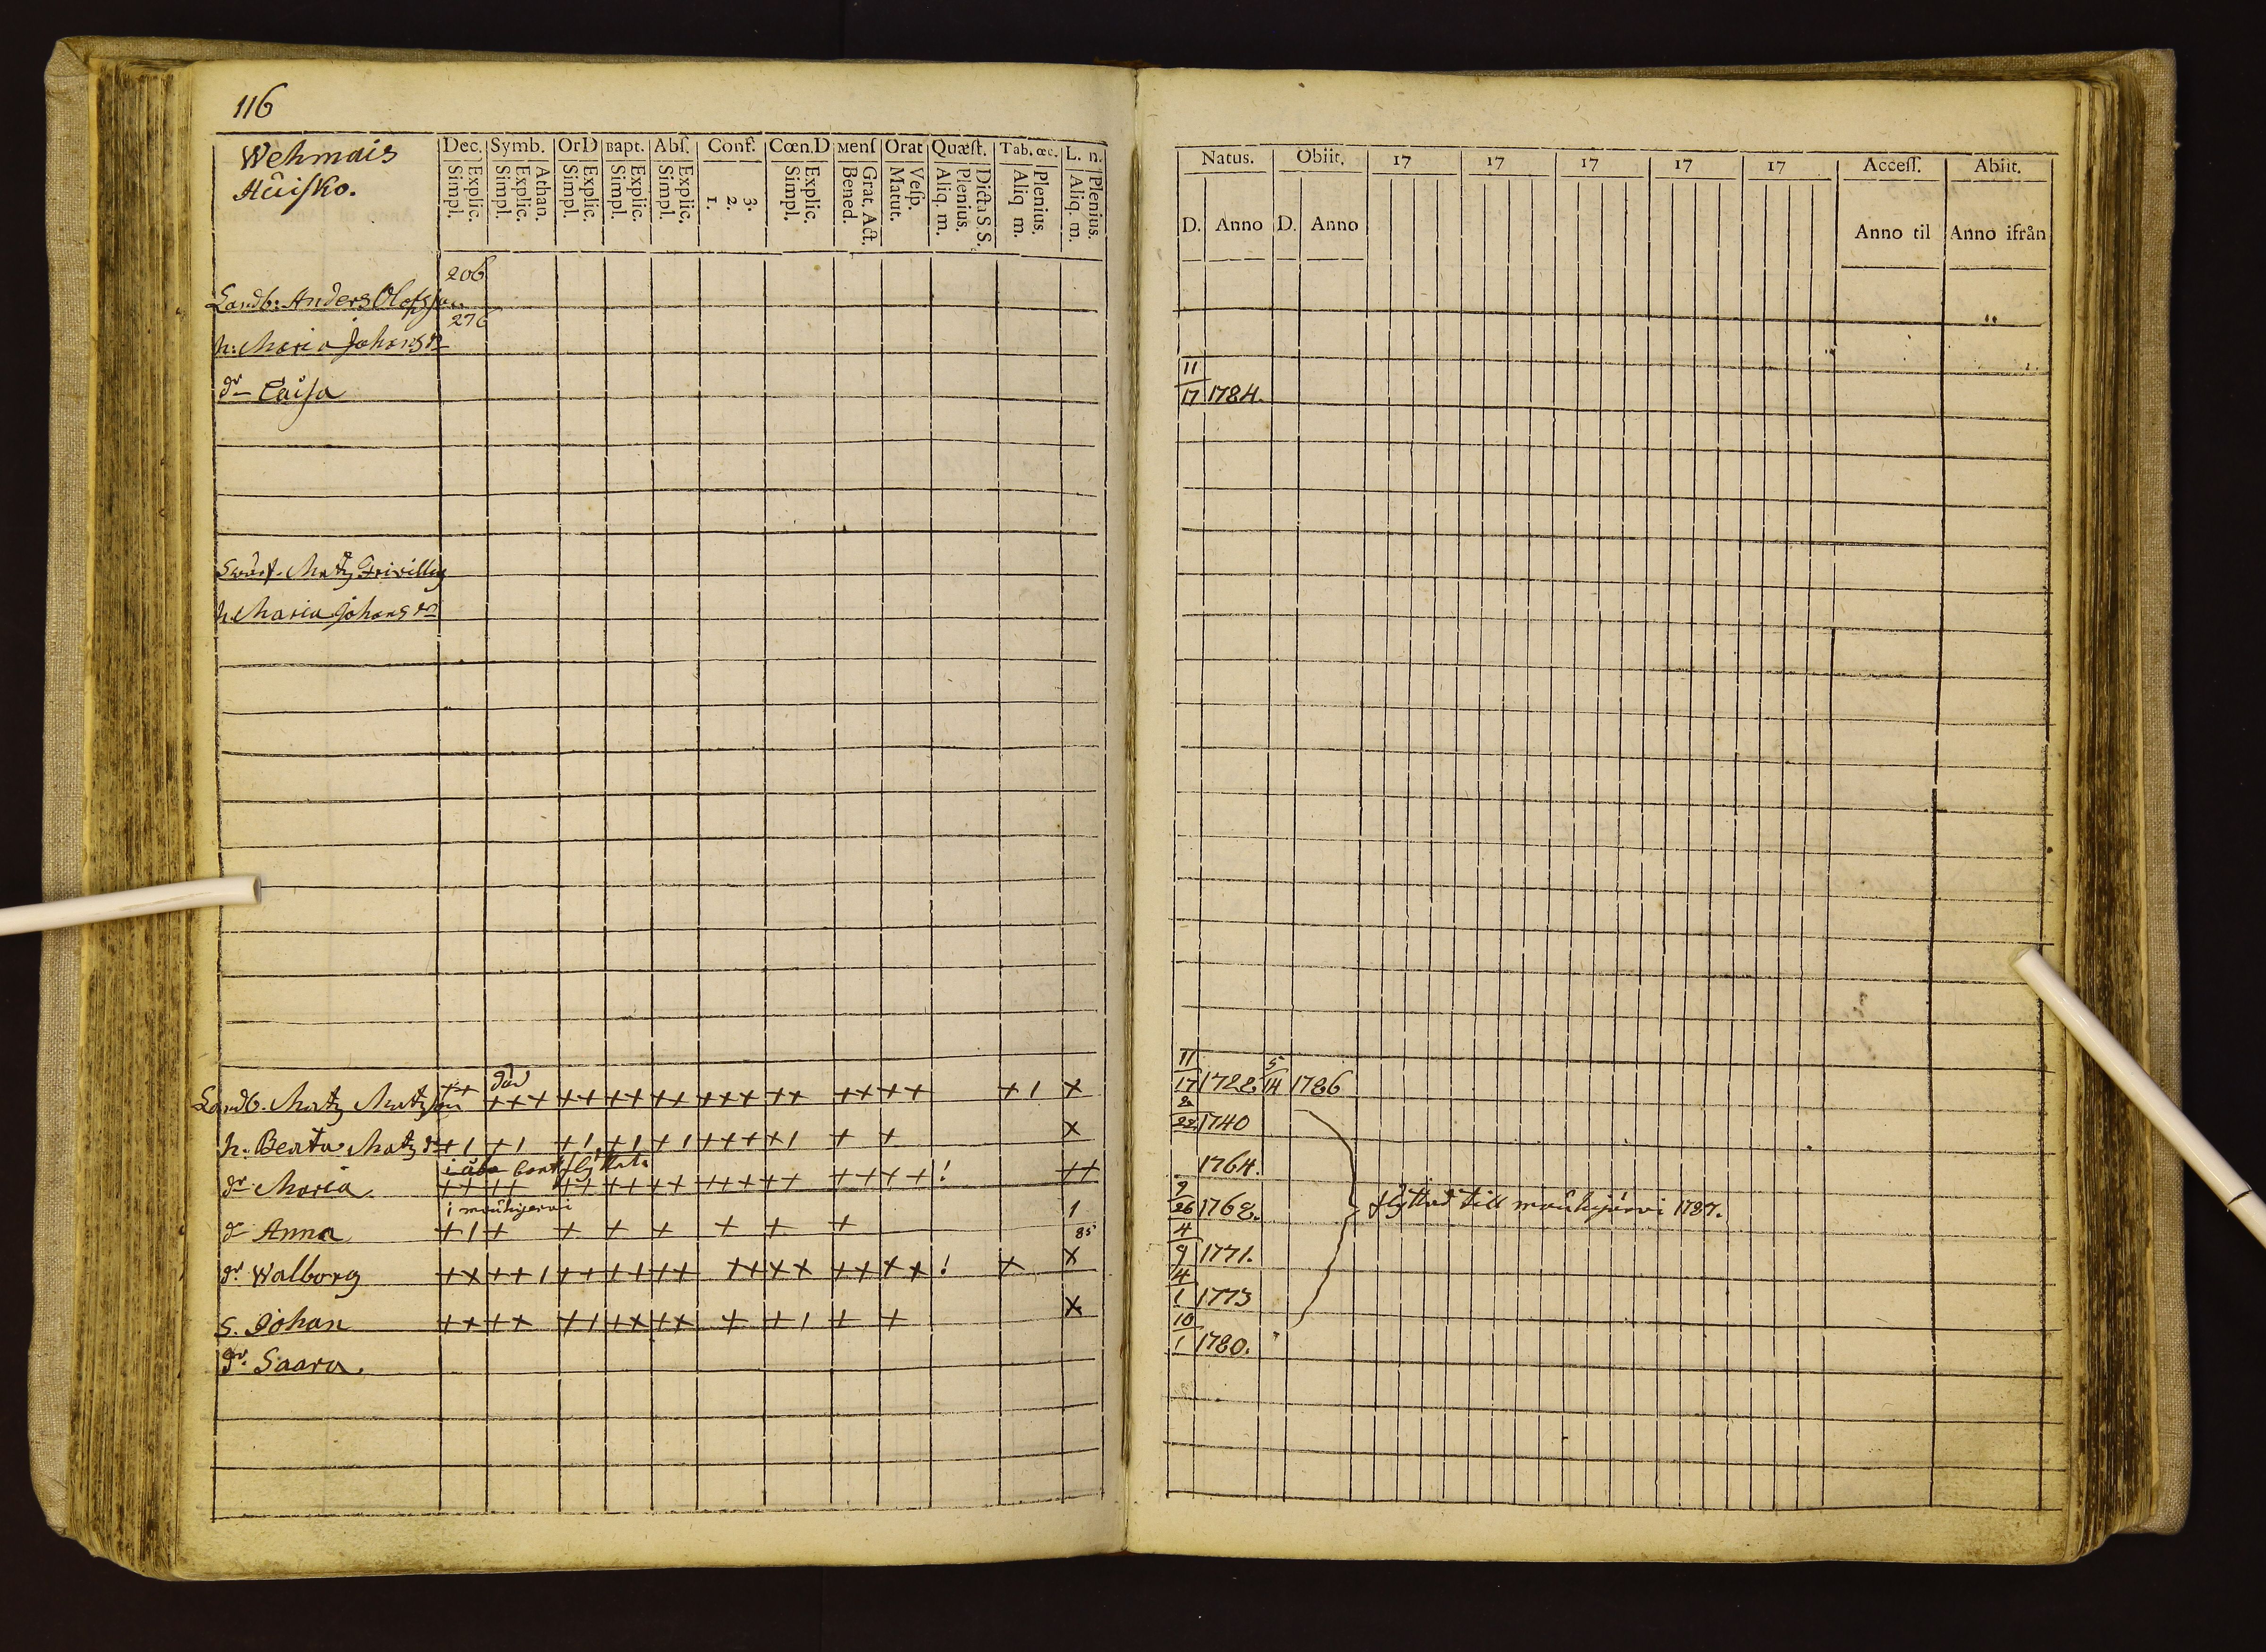 116
Wehmais
Huisko.
Dec. Symb. OrD Bapt. Abſ. Conf. Cœn.D Menſ Orat Quæſt. Tab. œc. L. n.
Explic. Simpl. Athan. Explic. Simpl. Explic. Simpl. Explic. Simpl. Explic. Simpl. 3. 2. 1. Explic. Simpl. Grat. Act. Bened. Veſp. Matut. Dicta S.S. Plenius. Aliq. m. Plenius. Aliq m. Plenius. Aliq. m.
Natus. Obiit. 17 17 17 17 17 Acceſſ. Abiit.
D. Anno D. Anno Anno til Anno ifrån
206
Landb: Anders Olofsson
276
h: Maria Johans dr
dr Caisa 11/17 1784.
Matz
h. Maria Johans dr
död
Landb. Matz Matzson ++ +++ ++ ++ ++ +++ ++ ++ ++ + 1 x 11/17 1728. 5/14 1786
h. Beata Matz dr + 1 + 1 + 1 + 1 + 1 +++ + 1 + + x 1740
bort flyttat
dr Maria. ++ ++ ++ ++ ++ +++ ++ ++ ++ ! ++ 1764.
i mouhijervi
dr Anna + 1 + + + + + + + 1 85 9/26 1768. flyttat till mouhijärvi 1787.
dr Walborg ++ ++ 1 ++ ++ ++ ++ ++ ++ ++ ! + x 4/9 1771.
S. Johan ++ ++ + 1 ++ ++ + + 1 + + x 4/1 1773
dr Saara. 10/1 1780.